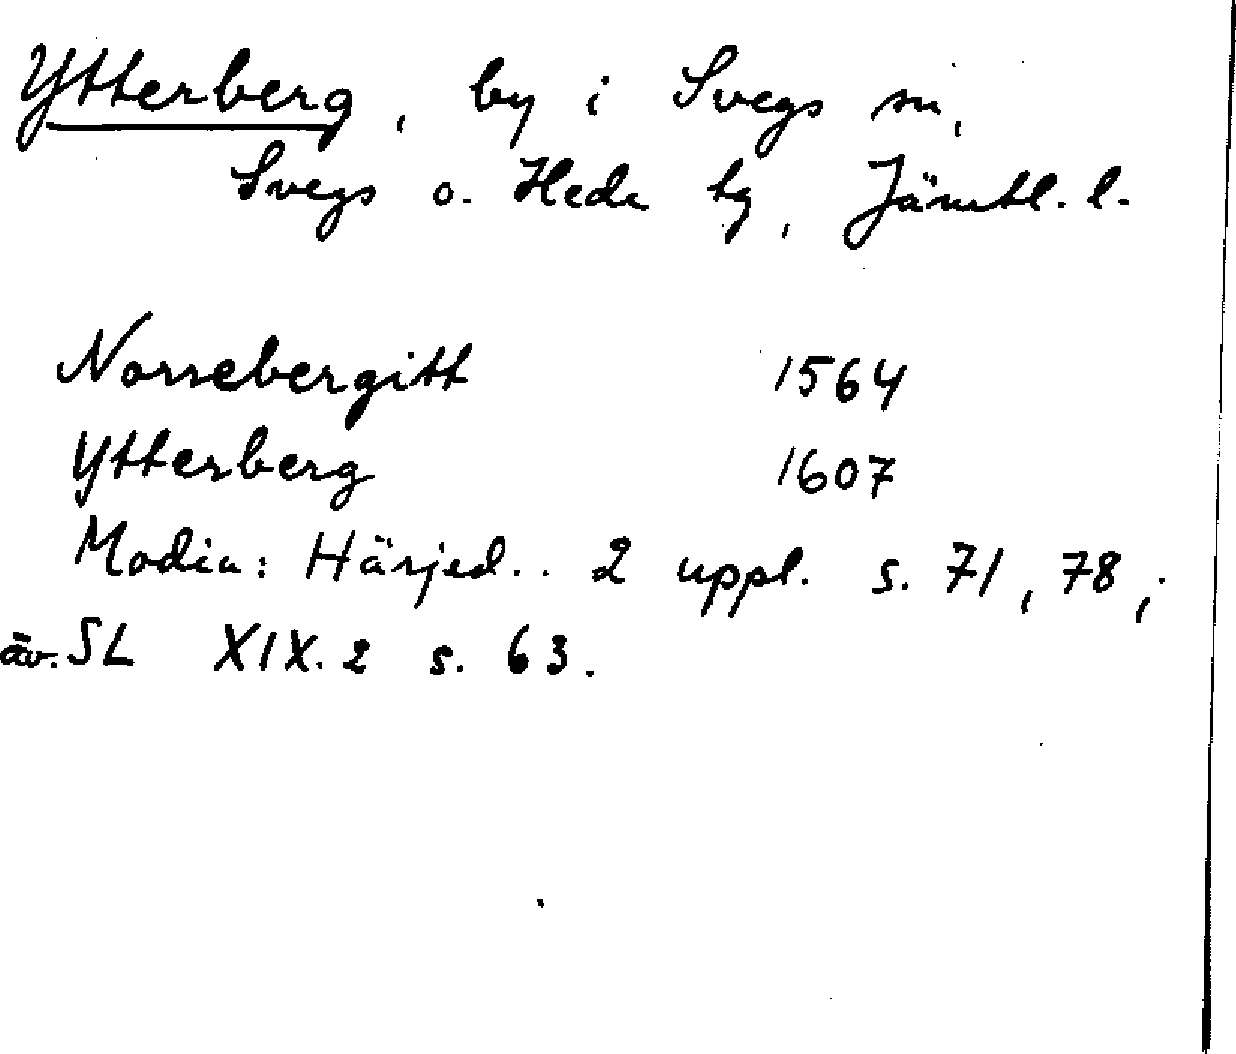 Ytterberg, by i Svegs sn,
Svegs o. Hede tg, Jämtl. l.
Norrebergitt 1564
Ytterberg 1607
Modin: Härjed.. 2 uppl. s. 71, 78,;
äv. SL XIX.2 s. 63.